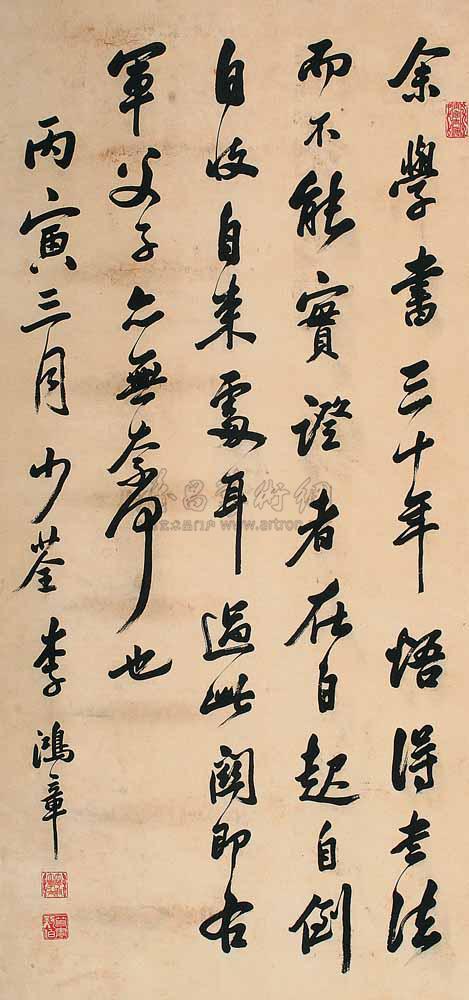 余學書三十年悟得書法
而不能實證者在自起自倒
自收自束處耳過此關即右
軍父子亦無奈何也
丙寅三月少荃李鴻章
雅昌藝術網
www.artron